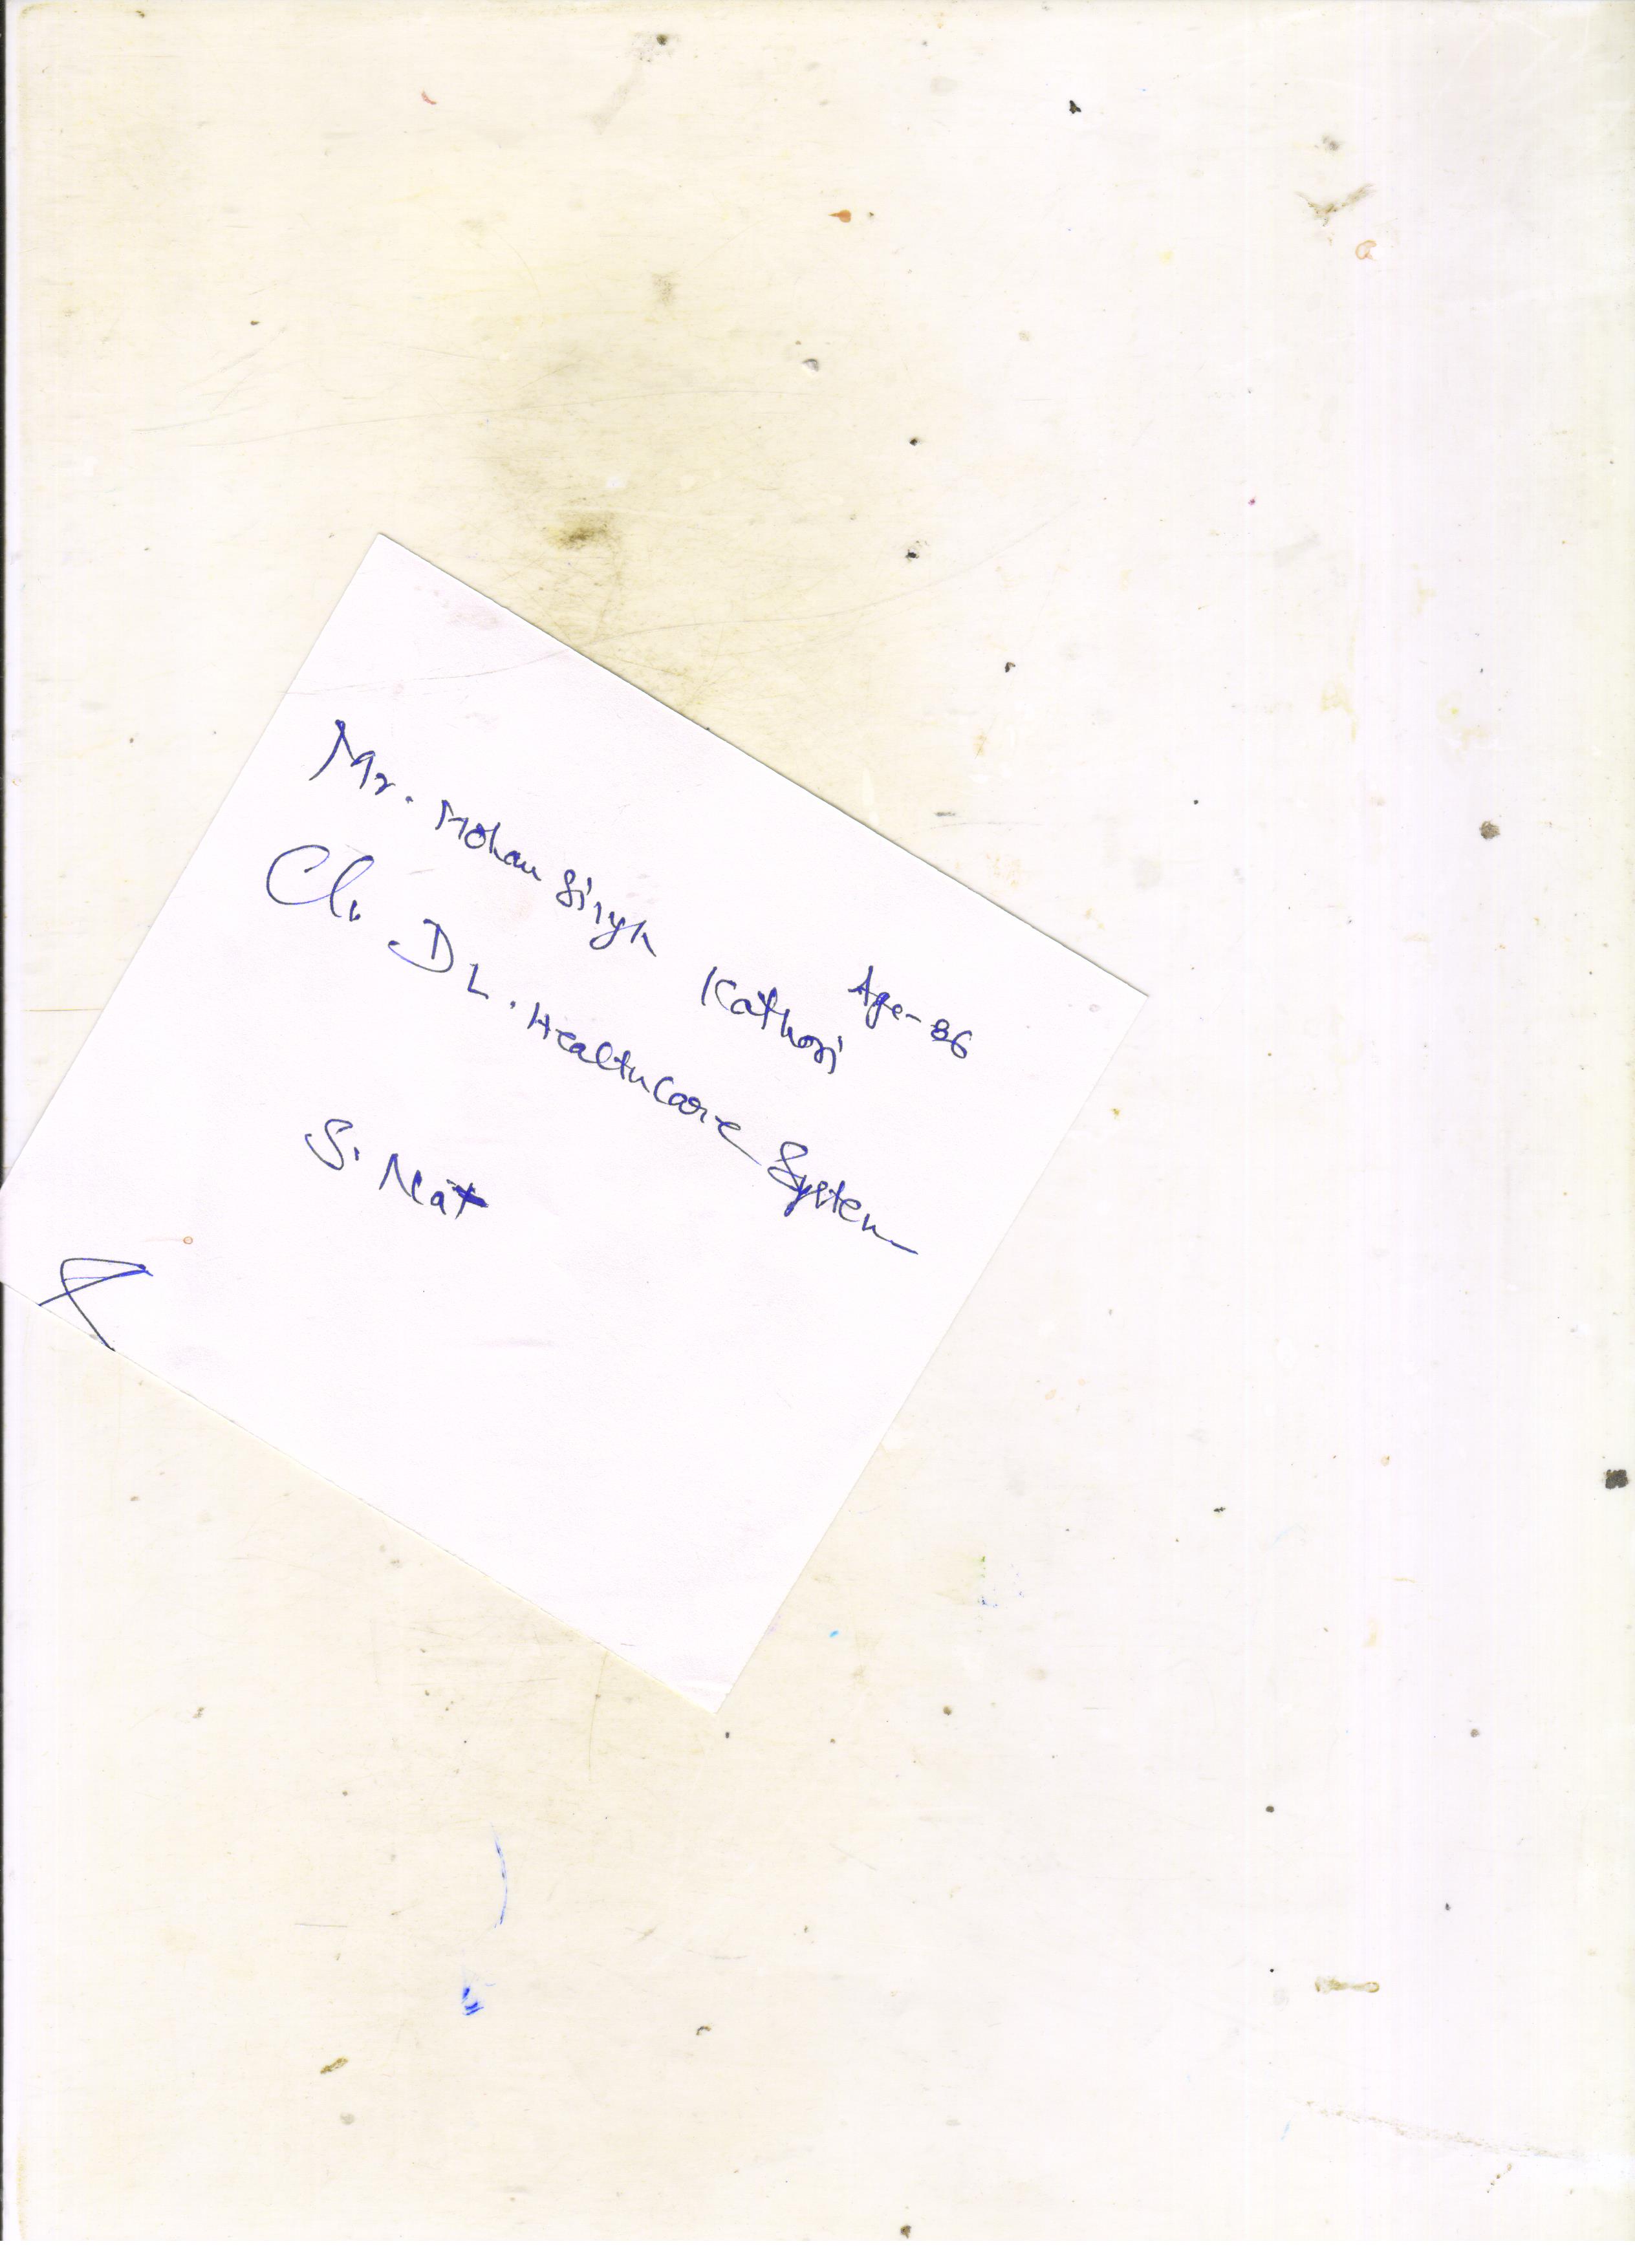 Mr. Mohan Singh Kathori Age-36
Cl. DL. Healthcare System
S. Nat